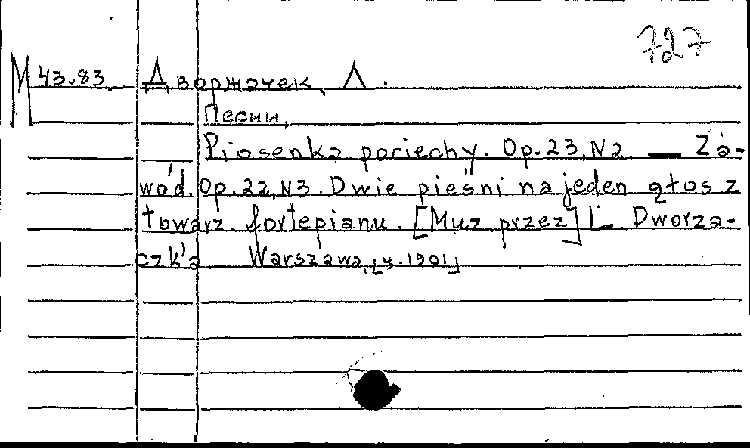 727
М 43.83 Дворжачек, Л.
Песни.
Piosenka pociechy. Op. 23, N2 — Za-
wód. Op. 22, N3. Dwie pieśni na jeden głos z
towarz. fortepianu. [Muz przez] L. Dworza-
czk'a Warszawa, [ц. 1901]